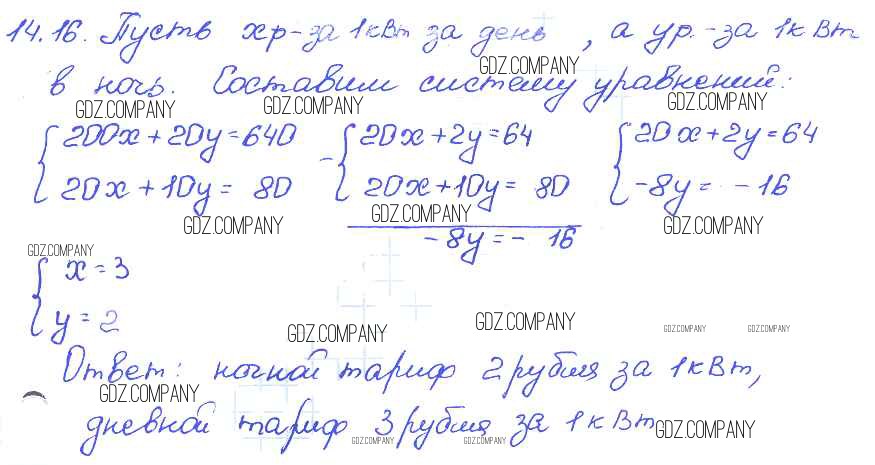 14.16. Пусть x р-за 1кВт за день, а y р.-за 1кВт
GDZ.COMPANY
в ночь. Составим систему уравнений:
GDZ.COMPANY GDZ.COMPANY GDZ.COMPANY
200x+20y=640 - 20x+2y=64 20x+2y=64
20x+10y= 80 20x+10y= 80 -8y= -16
GDZ.COMPANY GDZ.COMPANY GDZ.COMPANY
-8y=- 16
GDZ.COMPANY
x=3
y=2
GDZ.COMPANY GDZ.COMPANY GDZ.COMPANY GDZ.COMPANY
Ответ: ночной тариф 2 рубля за 1кВт,
GDZ.COMPANY
дневной тариф 3 рубля за 1кВт
GDZ.COMPANY GDZ.COMPANY GDZ.COMPANY